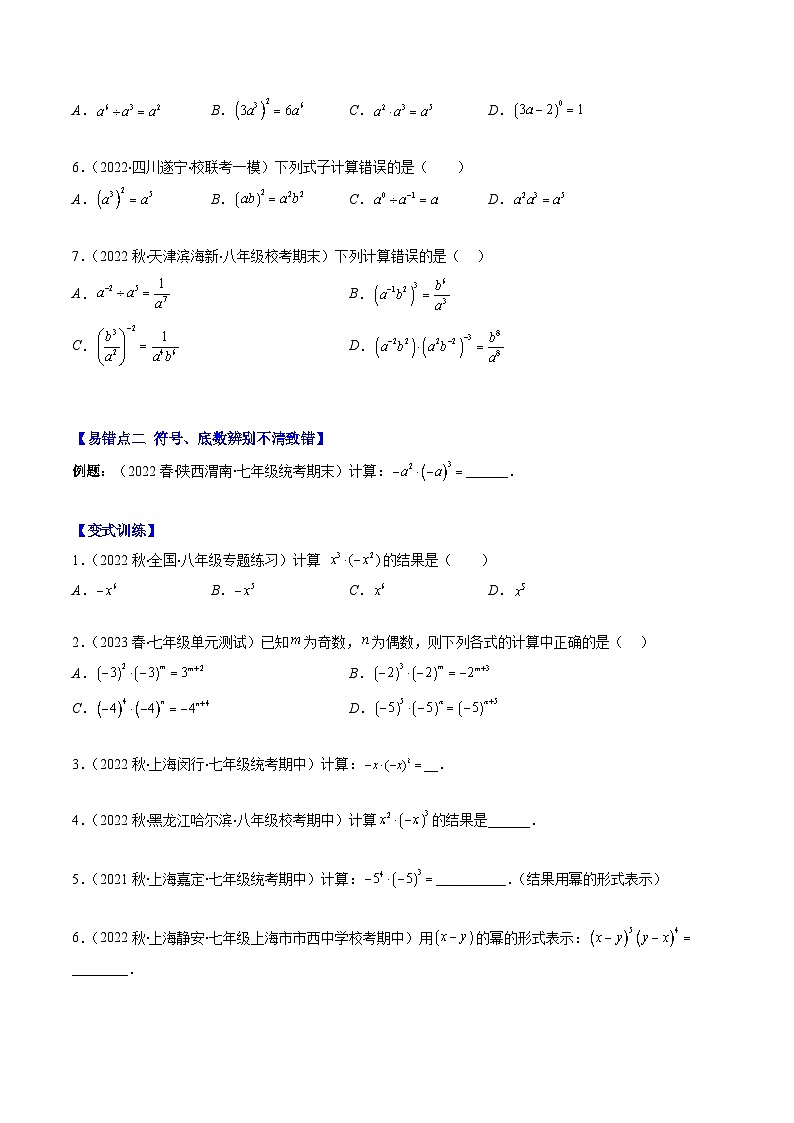 A. a⁶÷a³=a² B. (3a³)²=6a⁶ C. a²·a³=a⁵ D. (3a−2)⁰=1
6.(2022·四川遂宁·校联考一模)下列式子计算错误的是( )
A. (a³)²=a⁵ B. (ab)²=a²b² C. a⁰÷a⁻¹=a D. a²a³=a⁵
7.(2022秋·天津滨海新·八年级校考期末)下列计算错误的是( )
A. a⁻²÷a⁵=1/a⁷ B. (a⁻¹b²)³=b⁶/a³
C. (b³/a²)⁻²=1/(a⁴b⁶) D. (a⁻²b²)·(a²b⁻²)⁻³=b⁸/a⁸
【易错点二 符号、底数辨别不清致错】
例题:(2022春·陕西渭南·七年级统考期末)计算:−a²·(−a)³=______.
【变式训练】
1.(2022秋·全国·八年级专题练习)计算 x³·(−x²)的结果是( )
A. −x⁶ B. −x⁵ C. x⁶ D. x⁵
2.(2023春·七年级单元测试)已知m为奇数,n为偶数,则下列各式的计算中正确的是( )
A. (−3)²·(−3)ᵐ=3ᵐ⁺² B. (−2)³·(−2)ᵐ=−2ᵐ⁺³
C. (−4)⁴·(−4)ⁿ=−4ⁿ⁺⁴ D. (−5)⁵·(−5)ⁿ=(−5)ⁿ⁺⁵
3.(2022秋·上海闵行·七年级统考期中)计算:−x·(−x)²=__.
4.(2022秋·黑龙江哈尔滨·八年级校考期中)计算x²·(−x)³的结果是______.
5.(2021秋·上海嘉定·七年级统考期中)计算:−5⁴·(−5)³=__________.(结果用幂的形式表示)
6.(2022秋·上海静安·七年级上海市市西中学校考期中)用(x−y)的幂的形式表示:(x−y)⁵(y−x)⁴=
________.